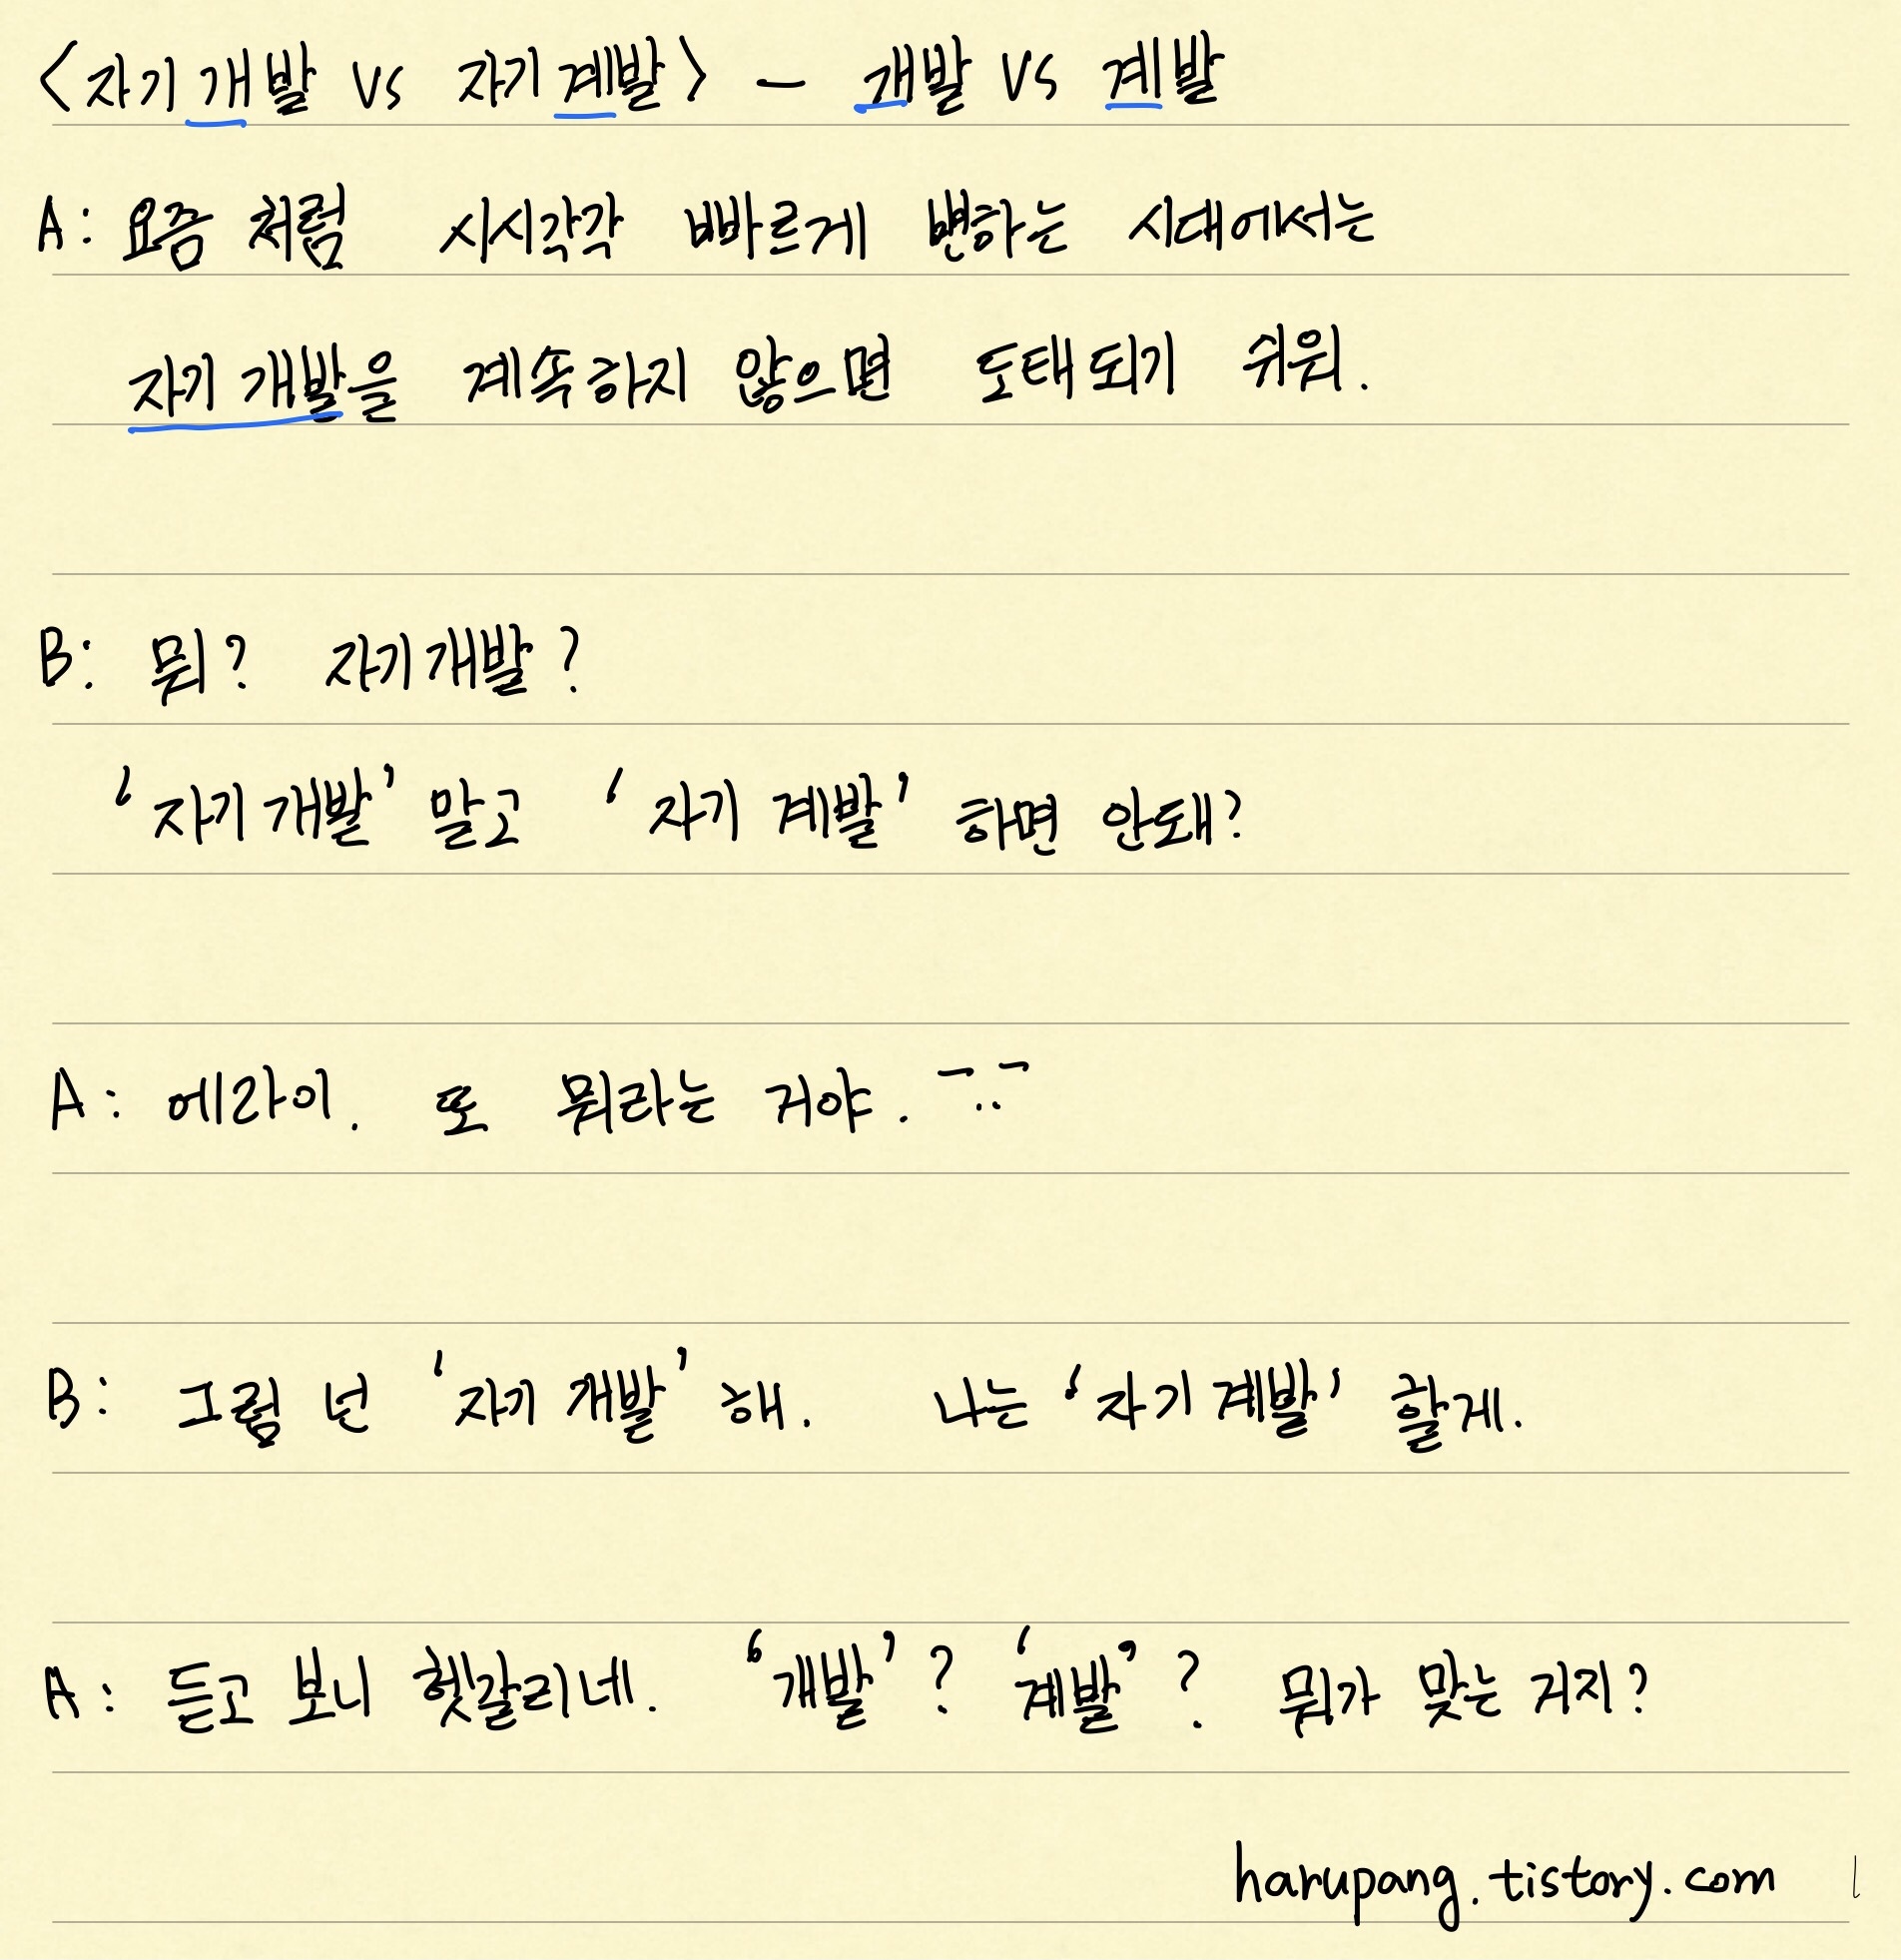 <자기개발 vs 자기계발> - 개발 vs 계발
A: 요즘 처럼 시시각각 빠르게 변하는 시대에서는
자기 개발을 계속하지 않으면 도태되기 쉬워.
B: 뭐? 자기개발?
'자기개발' 말고 '자기 계발' 하면 안돼?
A: 에라이. 또 뭐라는 거야.
B: 그럼 넌 '자기 개발' 해. 나는 '자기 계발' 할게.
A: 듣고 보니 헷갈리네. '개발'? '계발'? 뭐가 맞는 거지?
harupang.tistory.com